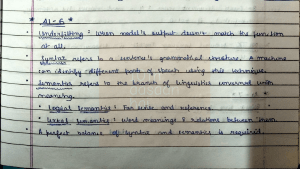 * AI-6 *
• Underfitting : When model's output doesn't match the function
at all.
• Syntax refers to a sentence's grammatical structure. A machine
can identify different parts of speech using this technique.
• Semantics refers to the branch of linguistics concerned with
meaning.
• Logical Semantics : For sense and reference.
• Lexical Semantics : Word meanings & relations between them.
• A perfect balance of syntax and semantics is required.